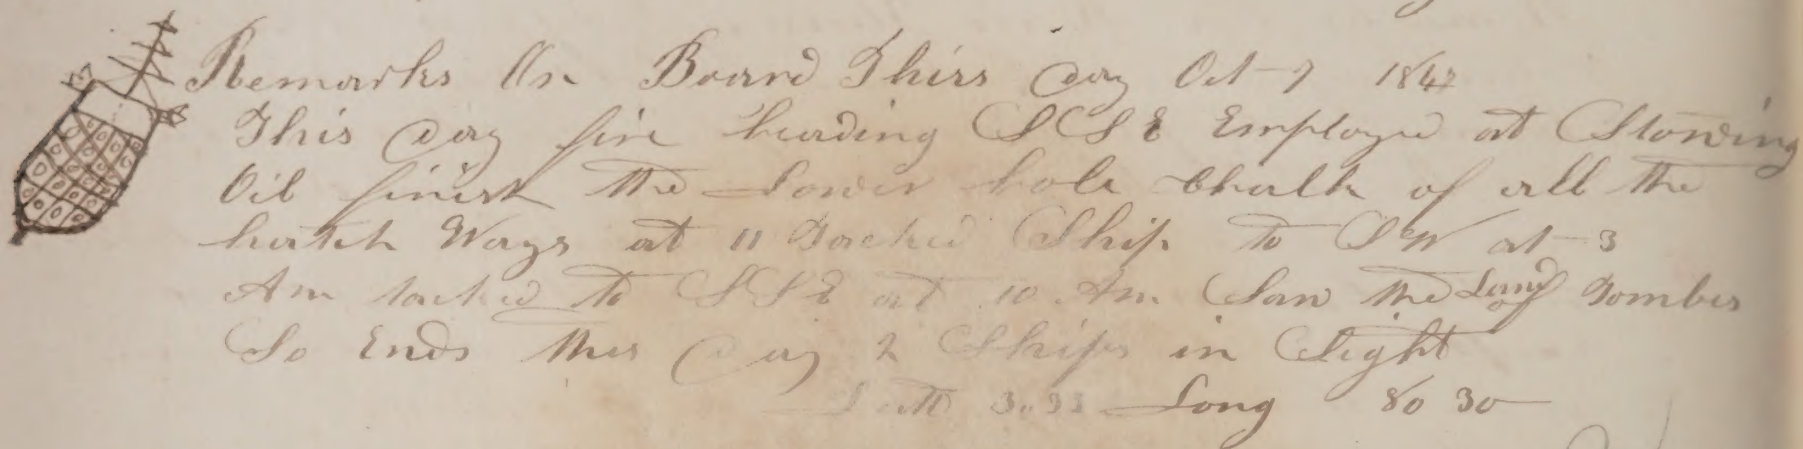 Remarks On Board Thirs Day Oct 7 1842
This Day fin heading SSE Employed at Stowing
Oil finish the Lower hole Chalk of all the
hatch Ways at 11 Tacked Ship to SW at 3
Am tacked to SSE at 10 Am Saw the Land of Tombes
So Ends this Day 2 Ships in Sight
Latt 3.33 Long 80 30